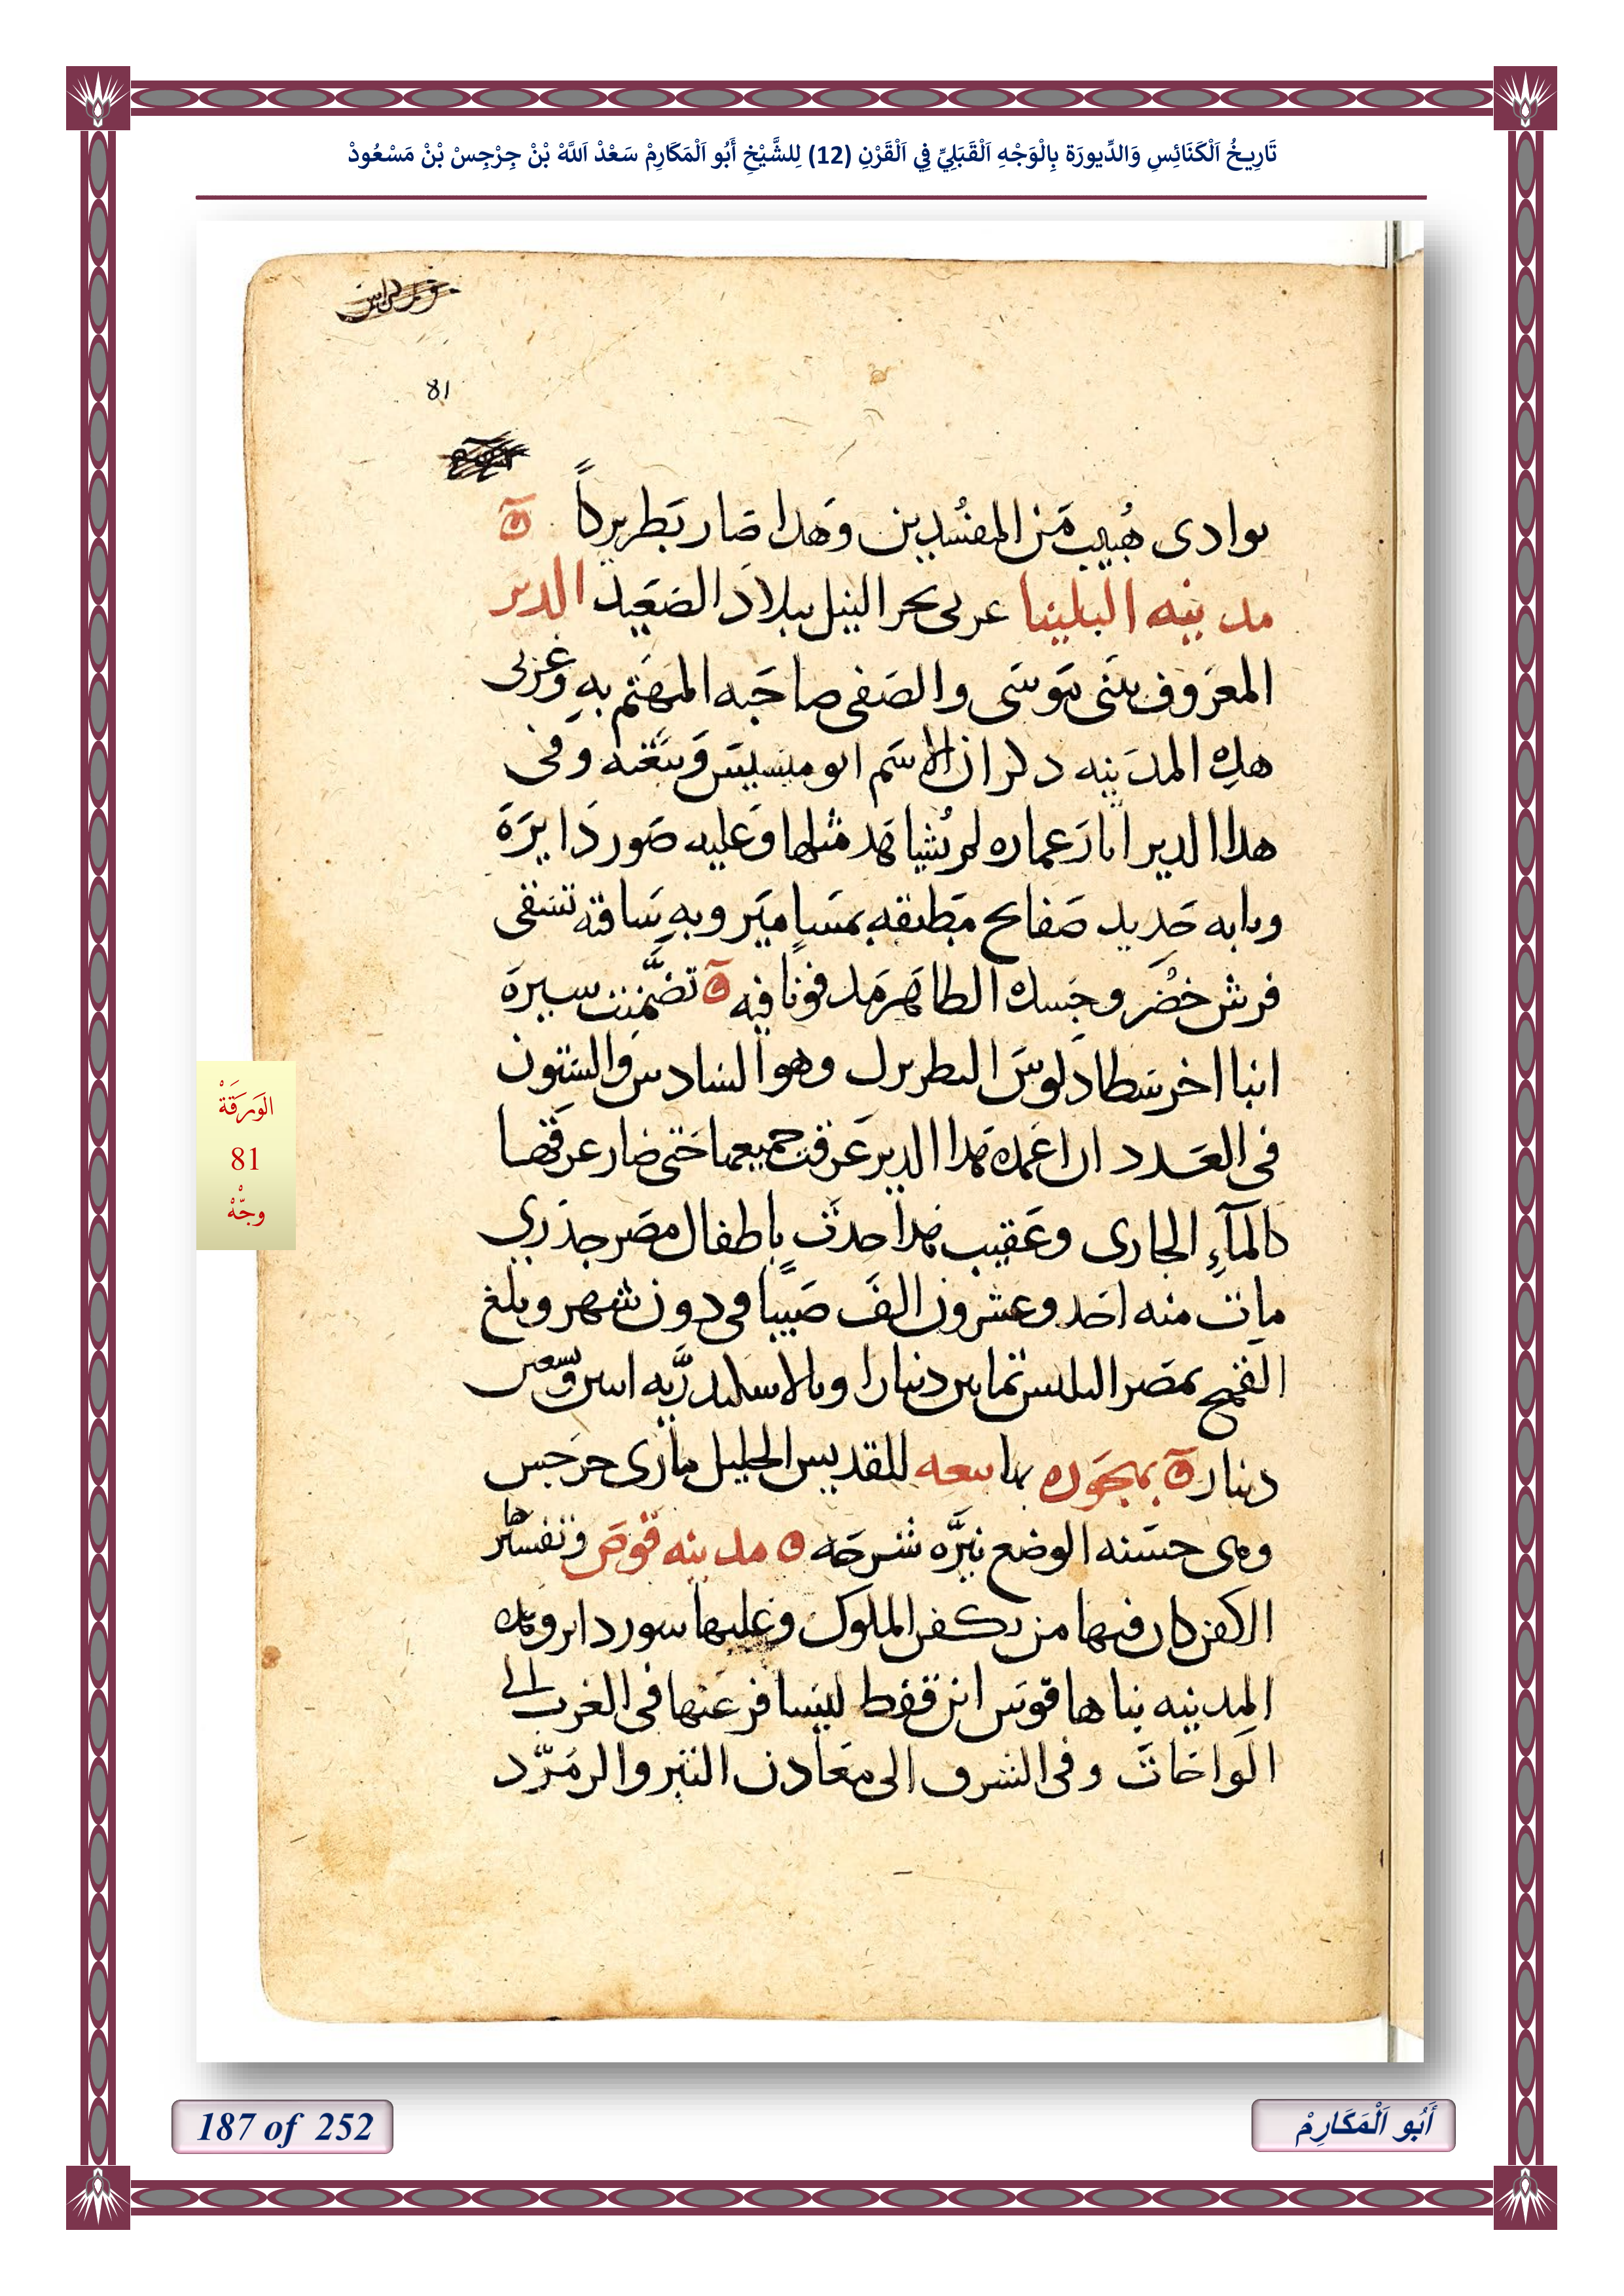 تَارِيخُ اَلْكَنَائِسِ وَالدِّيورَة بِالْوَجْهِ اَلْقَبَلِيِّ فِي اَلْقَرْنِ (12) لِلشَّيْخِ أَبُو اَلْمَكَارِمْ سَعْدْ اَللَّهْ بْنْ جِرْجِسْ بْنْ مَسْعُودْ
81
بوادى هُبيب مَن المفسُدين وهَدا صَار بَطريركاً
مدينه البلينا غربى بحر النيل ببلاد الصَعَيد الدير
المعرَوف ببنى مَوسَى والصَفى صاحَبه المهَتم بهِ وغربى
هدِه المدَينه دكر ان الاسَم ابو ميسيسَ وبيَعَته وفى
هدا الدير ابار عماره لم يُشاهَد مثلها وعَليه صَور دَايرَة
وبابه حَديد صَفايح مَطبقهِ بمسَاميَر وبهِ سَاقيه تسَقى
فرش خضُر وجَسده الطاهَر مَدفونا فيه تضَّمنت سيرَة
انبا اخرسَطادلوسَ البطريرك وهو السَادس والسَتون
فى العَدد ان اعمدَة هَدا الدير عَرقت جميعها حَتى صَار عَرقهَا
كالمآءِ الجارى وعَقيب هَدا حدَث باطفال مصَر جدَري
مات منه احَد وعشرون الفَ صَبيًا فى دون شهر وبلغ
القمح بمصَر التليس ثمانين دنيارا وبالاسكندرَّيه
دينار بمجَوره بها بيعه للقديس الجليل مارى جرَجس
وهى حسَنه الوضع نيرَّه شرحَه مدينه قوصَ وتفسيَرها
الكفن كان فيها من يكفن الملوك وعَليها سور داير وهده
المدينه بناها قوسَ ابن قفط ليسَافر عَنها فى الغرب الى
الوَاحَات وفى الشرق الى معَادن التبر والزمَرّد
الوَرَقَةْ
81
وجّهْ
187 of 252
أَبُو اَلْمَكَارِمْ